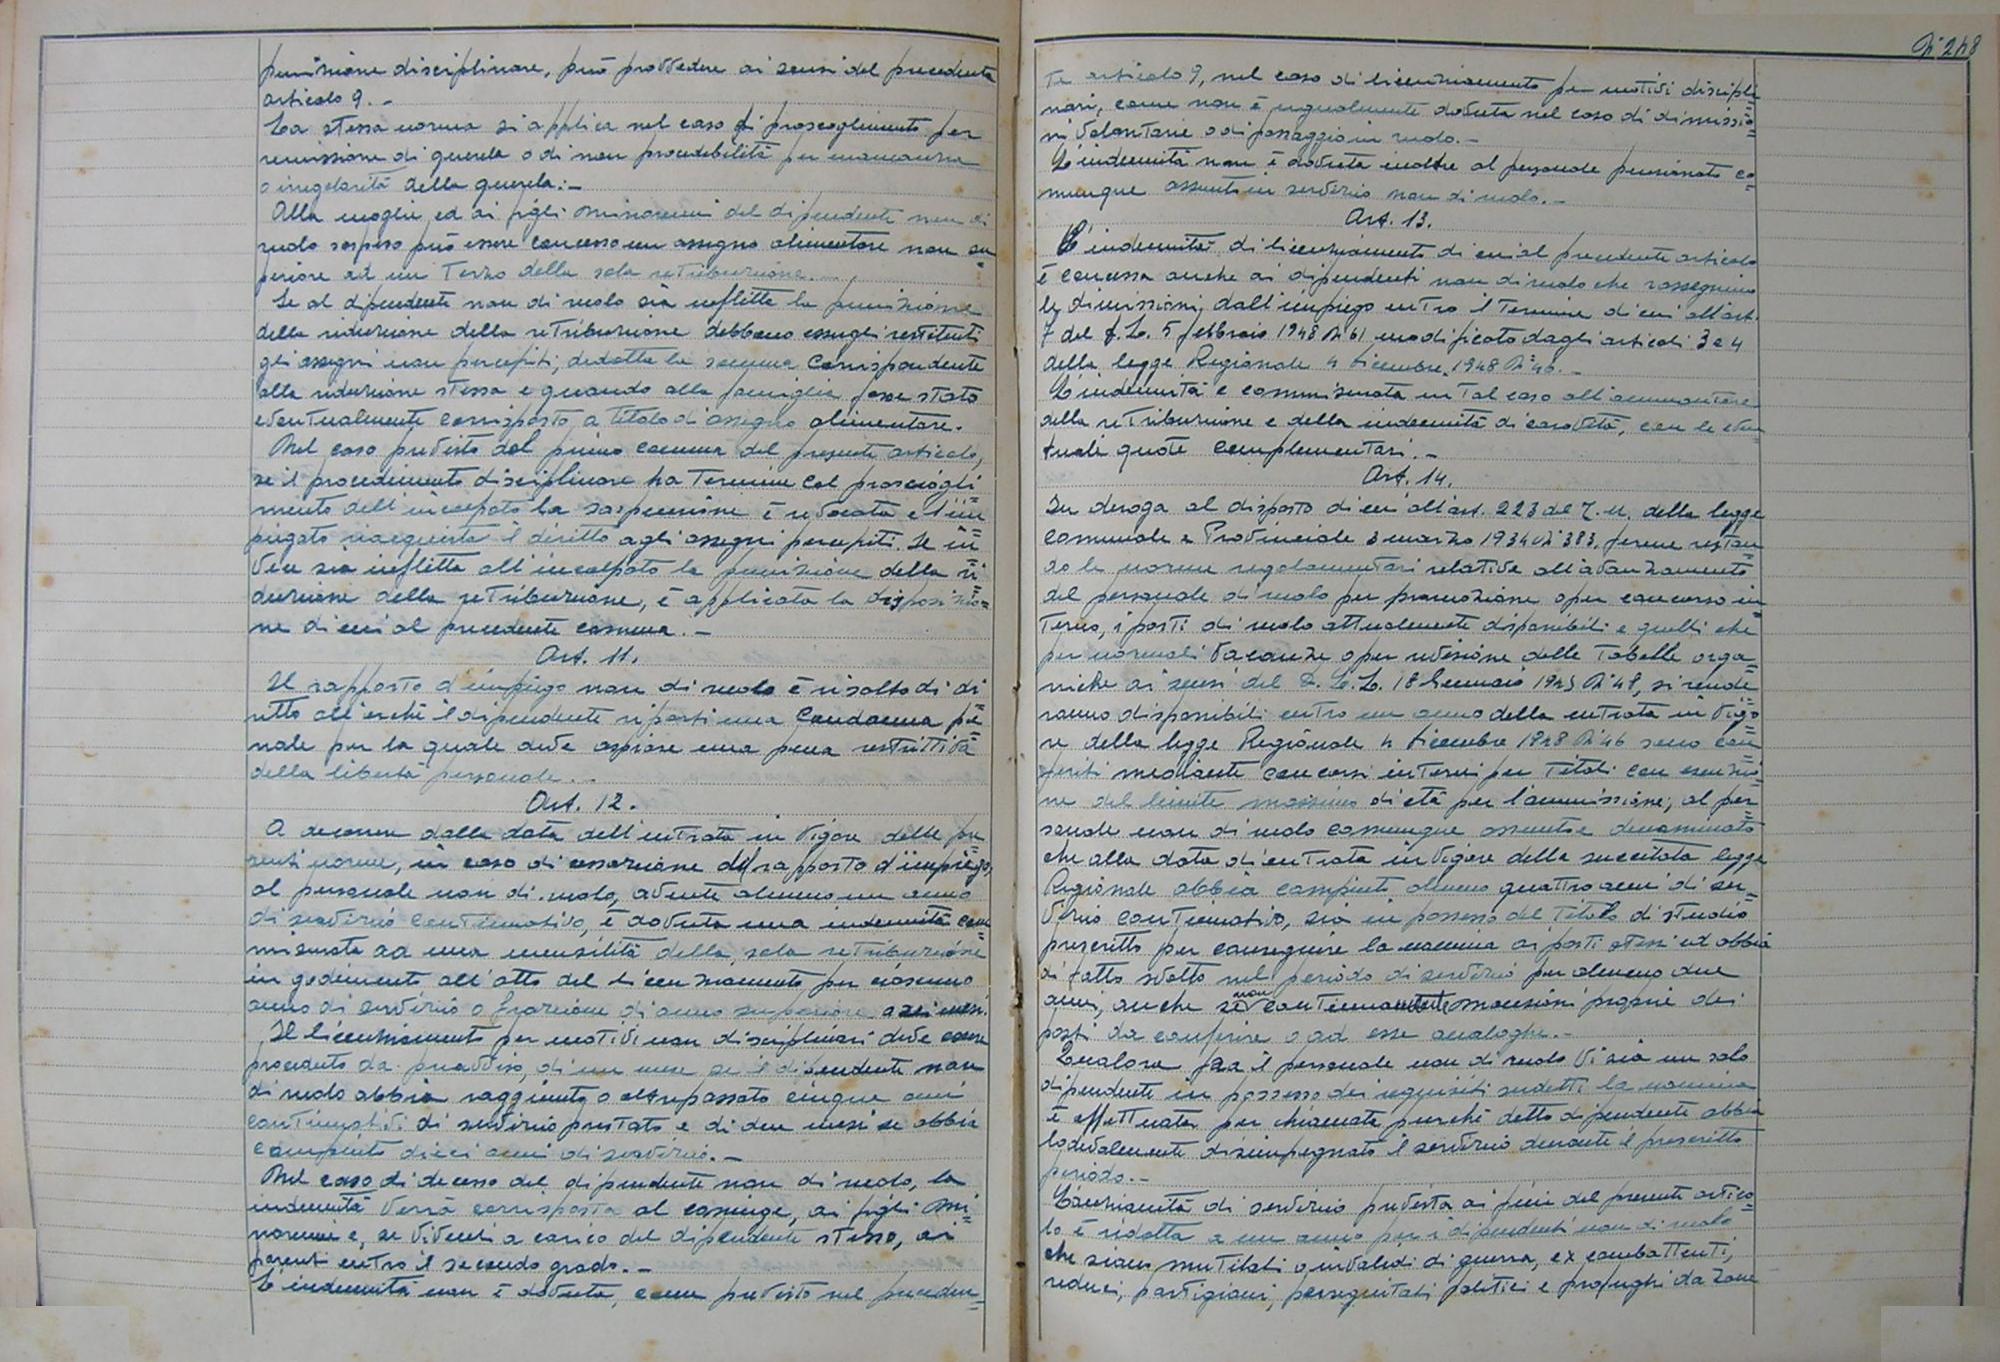 punizione disciplinare, può provvedere ai sensi del precedente
articolo 9. -
La stessa norma si applica nel caso di proscioglimento per
remissione di querela o di non procedibilità per mancanza
o irregolarità della querela: -
Alla moglie ed ai figli minorenni del dipendente non di
ruolo sospeso può essere concesso un assegno alimentare non su=
periore ad un terzo della sola retribuzione. -
Se al dipendente non di ruolo sia inflitta la punizione
della riduzione della retribuzione debbono essergli restituiti
gli assegni non percepiti, dedotta la somma corrispondente
alla riduzione stessa e quando alla famiglia fosse stato
eventualmente corrisposto a titolo di assegno alimentare.
Nel caso previsto dal primo comma del presente articolo,
se il procedimento disciplinare ha termine col prosciogli=
mento dell'incolpato la sospensione è revocata e l'im=
piegato riacquista il diritto agli assegni percepiti. Se in=
vece sia inflitta all'incolpato la punizione della ri=
duzione della retribuzione, è applicata la disposizio=
ne di cui al precedente comma. -
Art. 11.
Il rapporto d'impiego non di ruolo è risolto di di=
ritto allorchè il dipendente riporti una condanna pe=
nale per la quale deve espiare una pena restrittiva
della libertà personale. -
Art. 12.
A decorrere dalla data dell'entrata in vigore delle pre=
senti norme, in caso di cessazione del rapporto d'impiego,
al personale non di ruolo, avente almeno un anno
di servizio continuativo, è dovuta una indennità com=
misurata ad una mensilità della sola retribuzione
in godimento all'atto del licenziamento per ciascuno
anno di servizio o frazione di anno superiore a sei mesi.
Il licenziamento per motivi non disciplinari deve essere
preceduto da preavviso, di un mese se il dipendente non
di ruolo abbia raggiunto o oltrepassato cinque anni
continuativi di servizio prestato e di due mesi se abbia
compiuto dieci anni di servizio. -
Nel caso di decesso del dipendente non di ruolo, la
indennità verrà corrisposta al coniuge, ai figli mi=
norenni e, se viventi a carico del dipendente stesso, ai
parenti entro il secondo grado. -
L'indennità non è dovuta, come previsto nel preceden=
N° 248
te articolo 9, nel caso di licenziamento per motivi discipli=
nari, come non è ugualmente dovuta nel caso di dimissio=
ni volontarie o di passaggio in ruolo. -
L'indennità non è dovuta inoltre al personale pensionato co=
munque assunto in servizio non di ruolo. -
Art. 13.
L'indennità di licenziamento di cui al precedente articolo
è concessa anche ai dipendenti non di ruolo che rassegnino
le dimissioni dall'impiego entro il termine di cui all'art.
7 del D.L. 5 febbraio 1948 N° 61 modificato dagli articoli 3 e 4
della legge Regionale 4 dicembre 1948 N° 46. -
L'indennità è commisurata in tal caso all'ammontare
della retribuzione e della indennità di carovita, con le even=
tuali quote complementari. -
Art. 14.
In deroga al disposto di cui all'art. 223 del T.U. della legge
comunale e Provinciale 3 marzo 1934 N° 383, ferme restan=
do le norme regolamentari relative all'avanzamento
del personale di ruolo per promozione o per concorso in=
terno, i posti di ruolo attualmente disponibili e quelli che
per normali vacanze o per revisione delle tabelle orga=
niche ai sensi del D.L.L. 18 Gennaio 1945 N° 48, si rende=
ranno disponibili entro un anno della entrata in vigo=
re della legge Regionale 4 dicembre 1948 N° 46 sono con=
feriti mediante concorsi interni per titoli con esenzio=
ne del limite massimo di età per l'ammissione, al per=
sonale non di ruolo comunque assunto e denominato
che alla data di entrata in vigore della succitata legge
Regionale abbia compiuto almeno quattro anni di ser=
vizio continuativo, sia in possesso del titolo di studio
prescritto per conseguire la nomina ai posti stessi ed abbia
di fatto svolto nel periodo di servizio per almeno due
anni, anche se non continuati mansioni proprie dei
posti da conferire o ad esse analoghe. -
Qualora fra il personale non di ruolo vi sia un solo
dipendente in possesso dei requisiti sudetti la nomina
è effettuata per chiamata purchè detto dipendente abbia
lodevolmente disimpegnato il servizio durante il prescritto
periodo. -
L'anzianità di servizio prevista ai fini del presente artico=
lo è ridotta a un anno per i dipendenti non di ruolo
che siano mutilati o invalidi di guerra, ex combattenti,
reduci, partigiani, perseguitati politici e profughi da zone